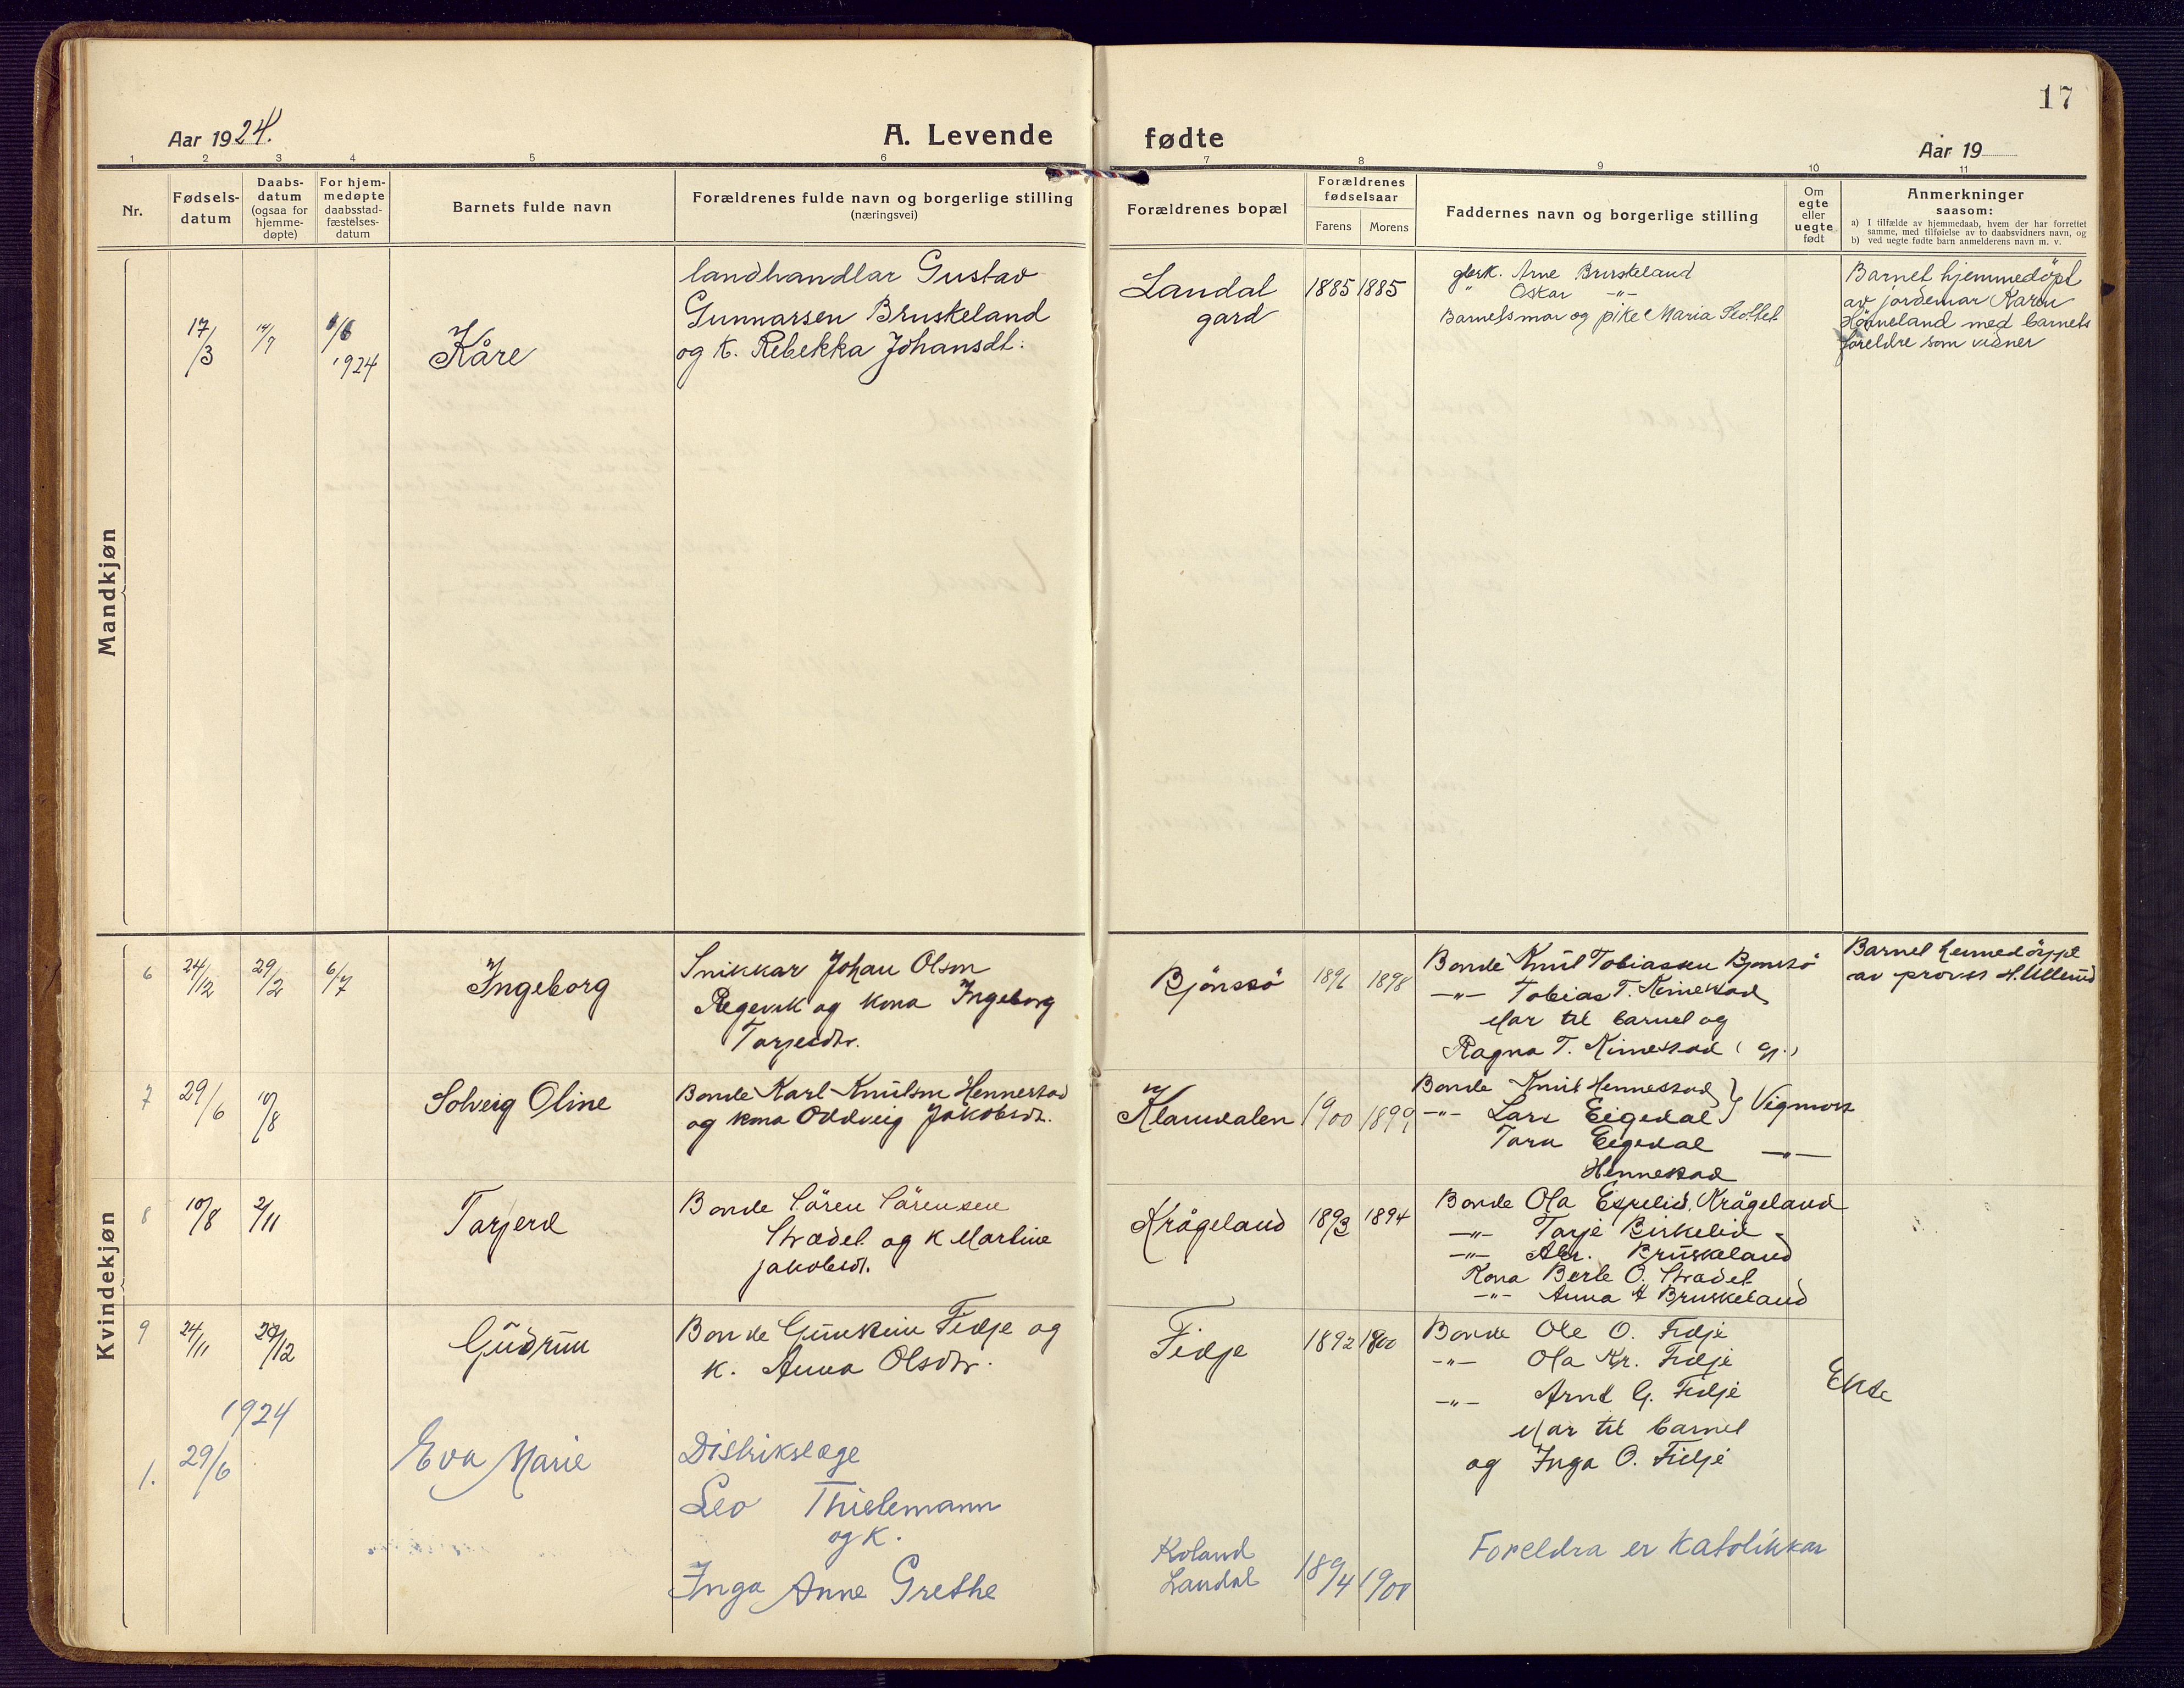 17
Aar 1924.
A. Levende
fødte
Aar 19
1 2 3 4 5 6 7 8 9 10 11
Nr.
Fødsels-
datum
Daabs-
datum
(ogsaa for
hjemme-
døpte)
For hjem-
medøpte
daabsstad-
fæstelses-
datum
Barnets fulde navn
Forældrenes fulde navn og borgerlige stilling
(næringsvei)
Forældrenes bopæl
Forældrenes
fødselsaar
Farens Morens
Faddernes navn og borgerlige stilling
Om
egte
eller
uegte
født
Anmerkninger
saasom:
a) I tilfælde av hjemmedaab, hvem der har forrettet
samme, med tilføielse av to daabsvidners navn, og
b) ved uegte fødte barn anmelderens navn m. v.
Mandkjøn
17/3
1924
Kåre
landhandlar Gustav
Gunnarsen Bruskeland
og k. Rebekka Johansdt.
Landal
gard
1885 1885
Arne Bruskeland
" Oskar -"-
Barnets mor og pike Maria Slottet
Barnet hjemmedöpt
av jordemor Karen
Hönneland med barnets
foreldre som vidner
Kvindekjøn
6 24/12 29/2 6/7
Ingeborg
Snikkar Johan Olson
Regevik og kona Ingeborg
Tarjesdtr.
Bjönssö
1896 1898
Bonde Knut Tobiassen Bjonsö
-"- Tobias T. Kimestad
Mor til barnet og
Ragna T. Kimestad (gj.)
Barnet heimedöypt
av provst H. Ullerud
7 29/6 10/8
Solveig Oline
Bonde Karl Knutson Hennestad
og kona Oddveig Jakobsdt.
Klamdalen
1900 1899
Bonde Knut Hennestad
-"- Lars Eigedal } Vigmost
Tara Eigedal -"-
Hennestad
8 10/8 2/11
Tarjerd
Bonde Sören Sörensen
Strædet og k Martine
Jakobsdt.
Krågeland
1893 1894
Bonde Ola Espelid, Krågeland
-"- Tarje Birkelid -
-"- Abr. Bruskeland
Kona Berte O. Strædet
-"- Anna A Bruskeland
9 24/11 29/12
Gudrun
Bonde Gunstein Fidje og
k. Anna Olsdtr.
Fidje
1892 1900
Bonde Ole O. Fidje
-"- Ola Kr. Fidje
-"- Arnt G. Fidje
Mor til barnet
og Inga O. Fidje
Ekte
1924
1. 29/6
Eva Marie
Distrikslæge
Leo Thielemann
og k.
Inga Anne Grethe
Koland
Landal
1894 1900
Foreldra er katolikkar